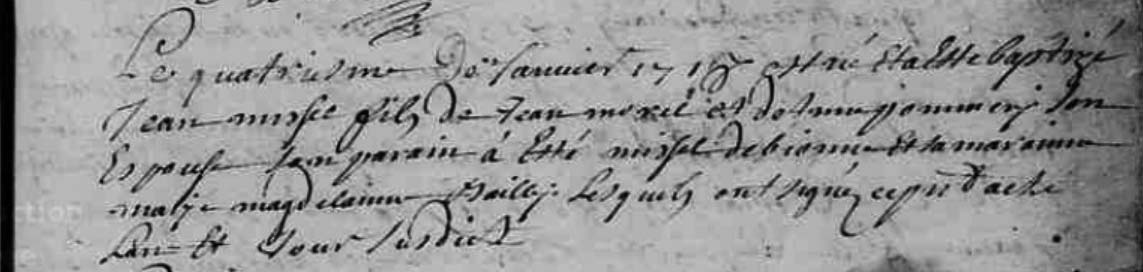 Le quatriesme De Janvier 1718 est né et a Esté baptizé
Jean missel fils de Jean morel et de son
Espouse son parain à Esté missel debionne Et sa maraine
marye magdelainne Bailly Lesquels ont signéz ce pnt acte
Lan Et Jour susdict